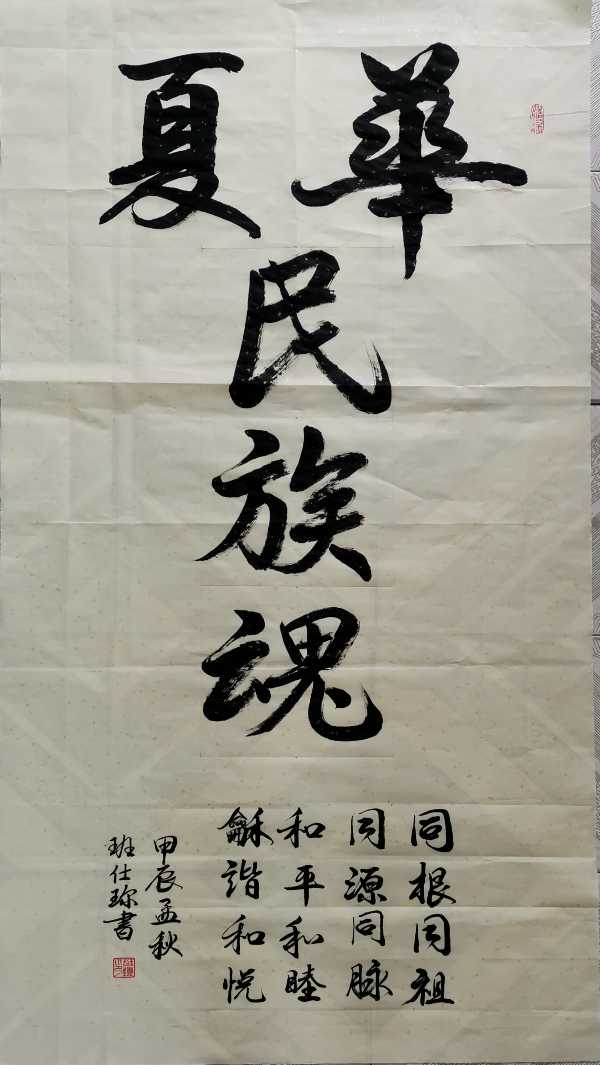 華夏
民
族
魂
同根同祖
同源同脉
和平和睦
龢諧和悦
甲辰孟秋
班仕珎書